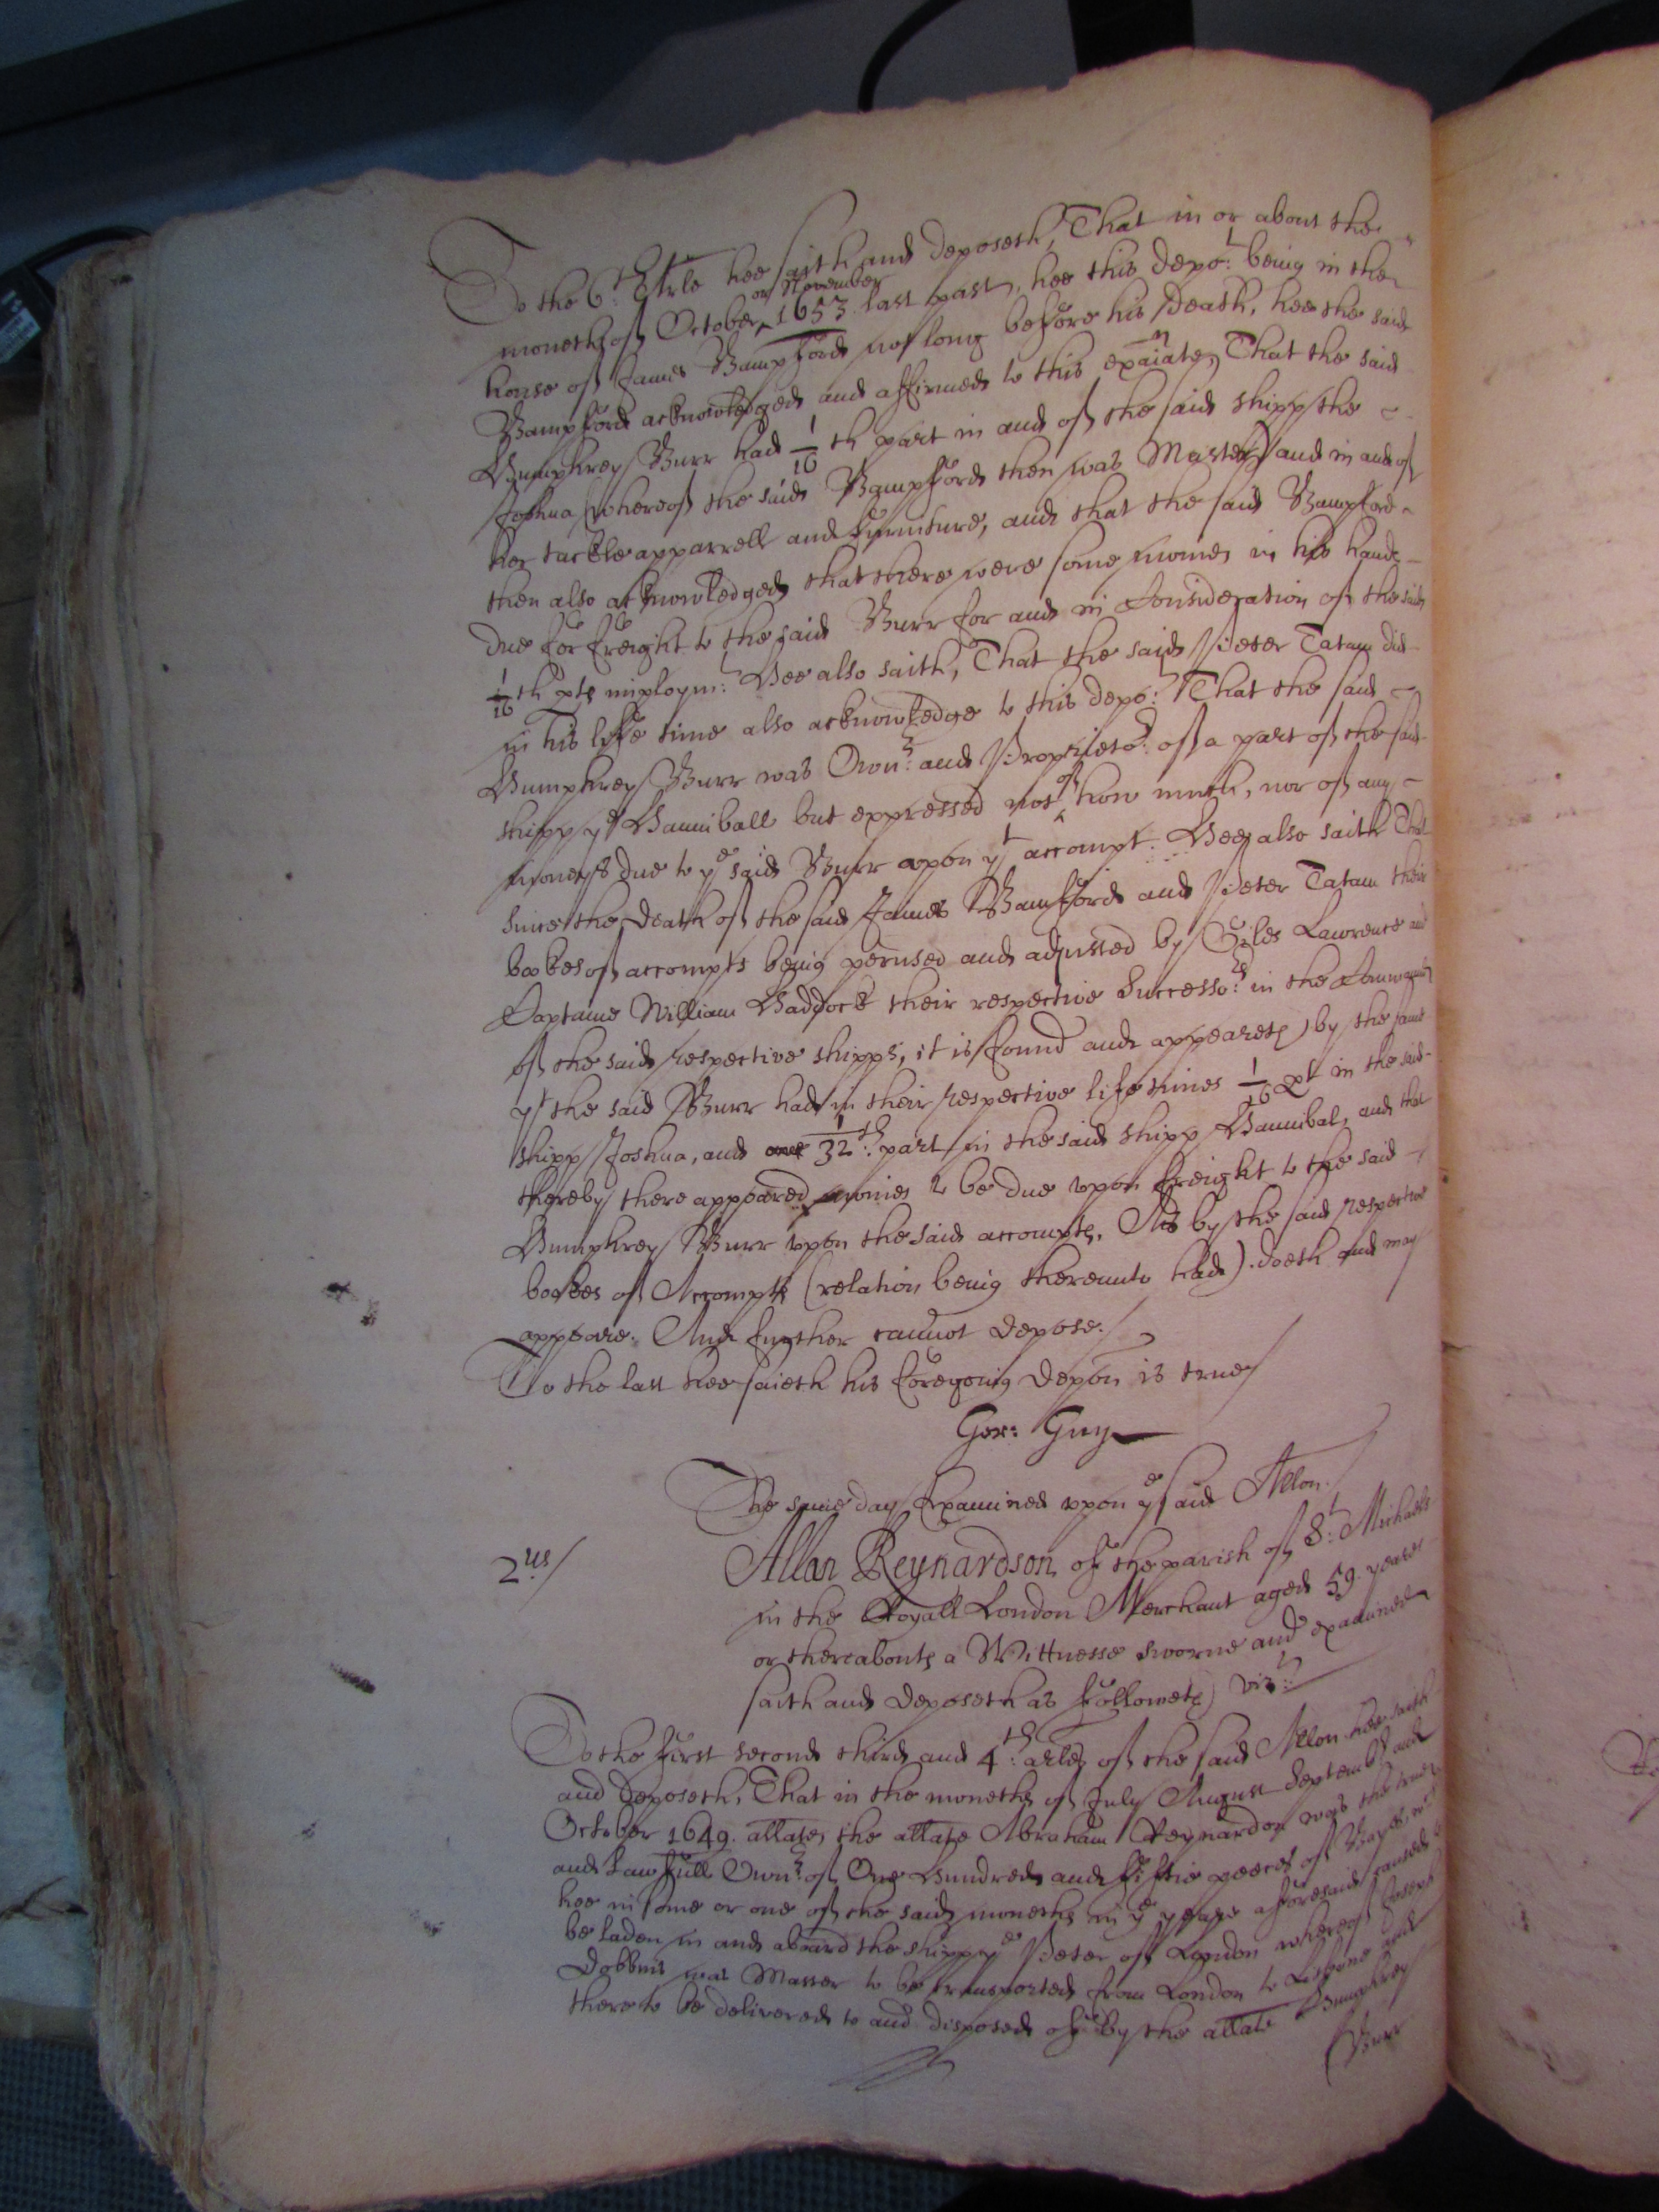 To the 6:th Arle hee saith and deposeth, That in or about the
moneth of October or November 1653 last past, hee this depo:t being in the
house of James Bampford not long before his death, hee the said
Bampford acknowledged and affirmed to this exaiate, That the said
Humphrey Burr had 1/16 th part in and of the said shipp the
Joshua (whereof the said Bampford then was Master) and in and of
her tackle apparrell and furniture, and that the said Bampford
then also acknowledged that there were some monies in his hands
due for freight to the said Burr for and in Consideration of the said
1/16 th pts imploym:t Hee also saith, That the said Peter Tatam did
in his life time also acknowledge to this depo:t That the said
Humphrey Burr was Own:r and Proprieto:r of a part of the said
shipp ye Hanniball but expressed not of how much, nor of any
moneys due to ye said Burr upon yt accompt. Hee also saith That
since the death of the said James Bamford and Peter Tatam their
bookes of accompts being perused and adjusted by Giles Lawrence and
Captaine William Haddock their respective Successo:rs in the Command
of the said respective shipps, it is found and appeareth by the same
yt the said Burr had in their respective life times 1/16 pt in the said
shipp Joshua, and one 1/32:th part in the said shipp Hannibal, and that
thereby there appeared monies to be due upon freight to the said
Humphrey Burr upon the said accompts, As by the said respective
bookes of Accompts (relation being thereunto had) doeth and may
appeare. And further cannot depose.
To the last hee saieth his foregoing depon is true
Ger: Guy
The same day Examined upon ye said Allon.
2us
Allan Reynardson of the parish of St: Michaels
in the Royall London Merchant aged 59 yeares
or thereabouts a Wittnesse sworne and examined
saith and deposeth as followeth vizt:
To the first second third and 4:th arles of the said Allon hee saith
and deposeth, That in the moneths of July August September and
October 1649. allate, the allate Abraham Reynardson was the true
and Lawfull Own:r of One Hundred and fiftie peeces of Bayes, wch
hee in some or one of the said moneths in ye yeare aforesaid caused to
be laden in and aboard the shipp ye Peter of London whereof Joseph
Dobbins was Master to be transported from London to Lisbone and
there to be delivered to and disposed of by the allate Humphrey
Burr